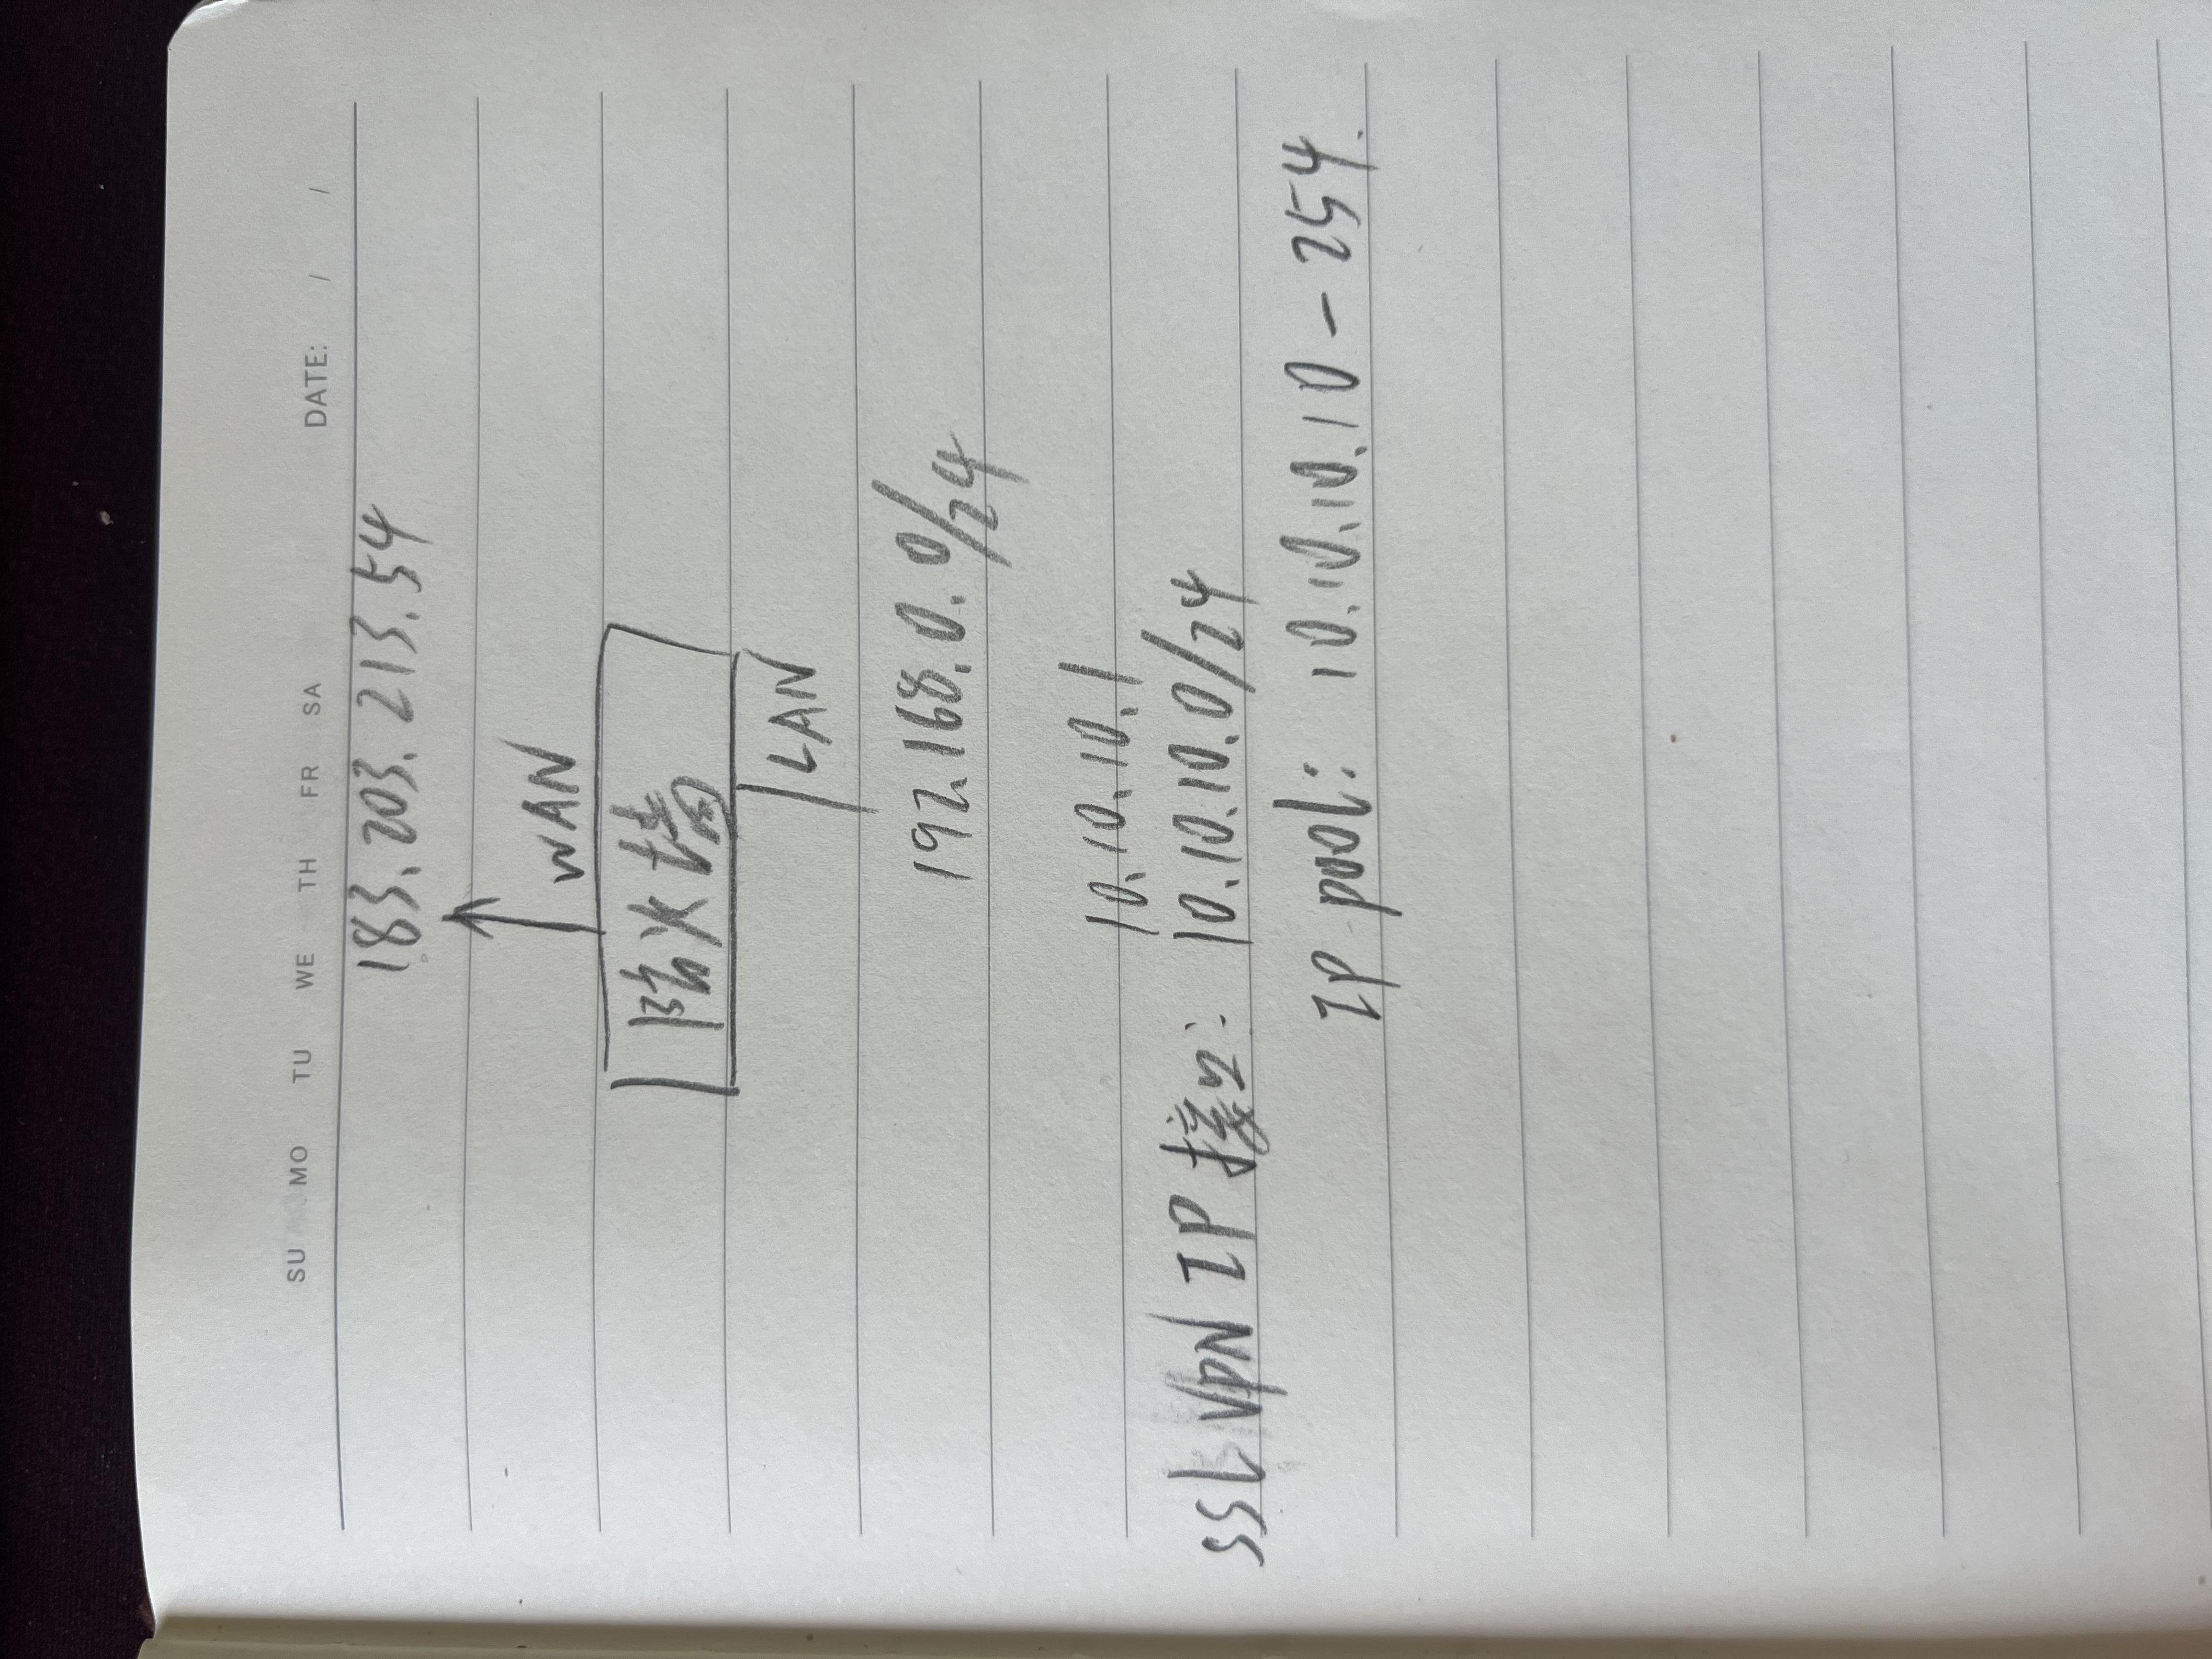 SU MO TU WE TH FR SA DATE: / /
183.203.213.54
WAN
防火墙
LAN
192.168.0.0/24
10.10.10.1
SSL VPN IP 接口: 10.10.10.0/24
IP pool: 10.10.10.10-254.